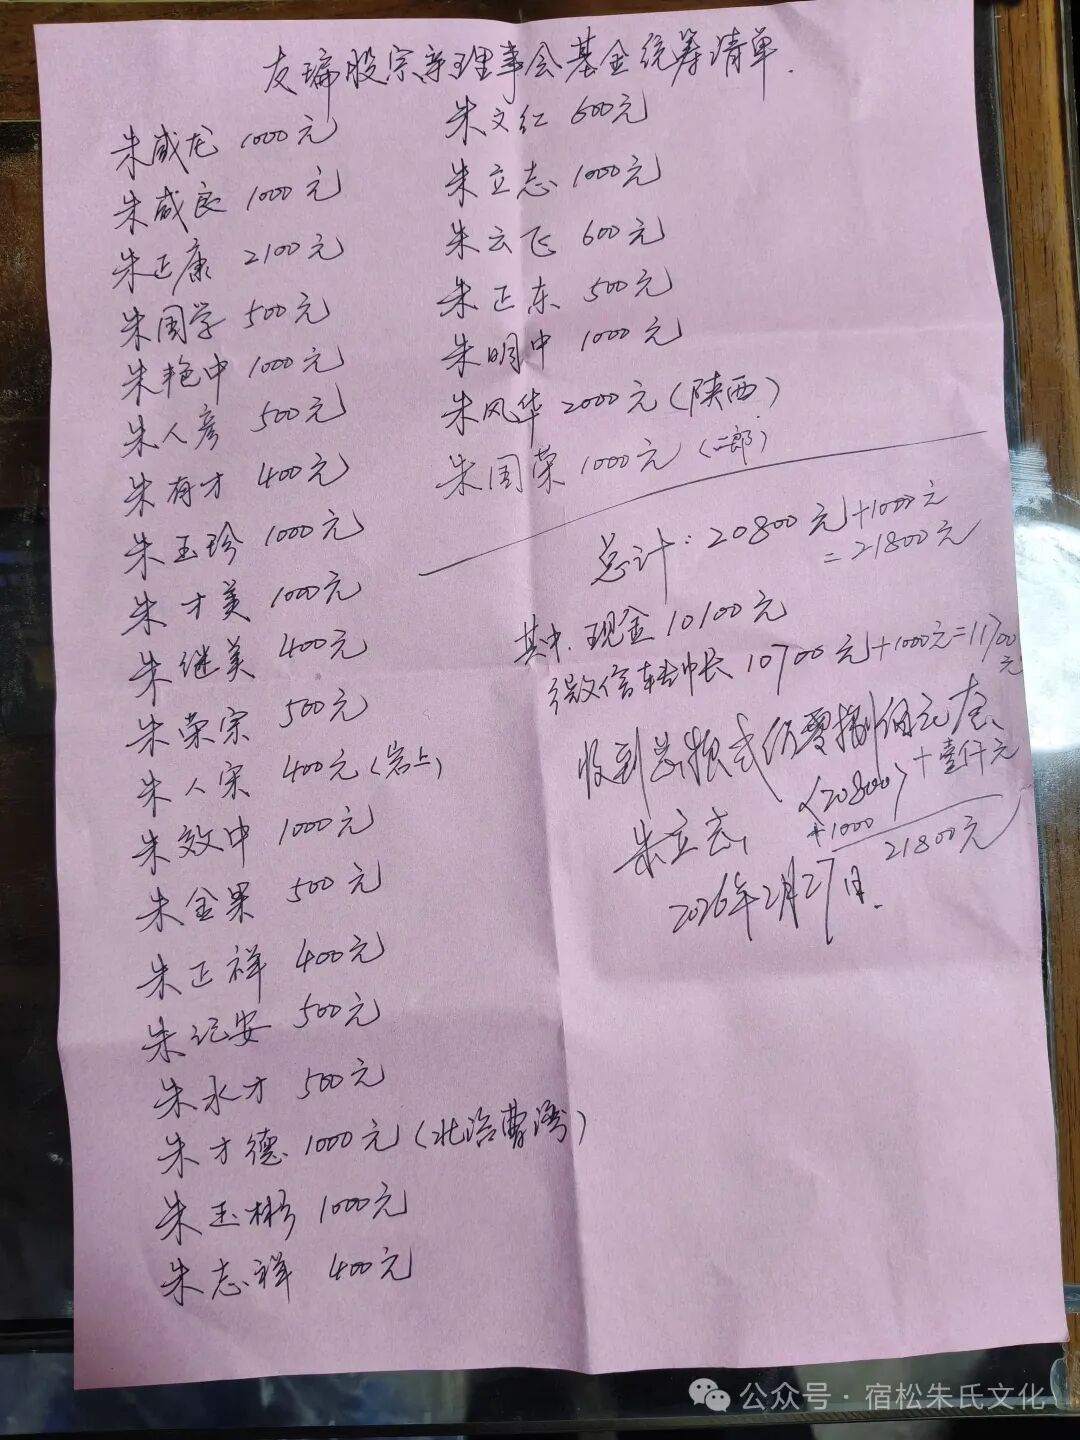 友瑞股宗亲理事会基金统筹清单.
朱咸龙 1000元
朱咸良 1000元
朱正康 2100元
朱国学 500元
朱艳中 1000元
朱人彦 500元
朱有才 400元
朱玉珍 1000元
朱才美 1000元
朱继美 400元
朱荣宗 500元
朱人宋 400元(岩上)
朱效中 1000元
朱金果 500元
朱正祥 400元
朱记安 500元
朱永才 500元
朱才德 1000元(北浴曹湾)
朱玉彬 1000元
朱志祥 400元
朱文红 600元
朱立志 1000元
朱云飞 600元
朱正东 500元
朱明中 1000元
朱风华 2000元(陕西)
朱国荣 1000元(二郎)
总计:20800元+1000元
=21800元
其中.现金10100元
微信转帐10700元+1000元=11700元
收到总根贰万零捌佰元左
+壹仟元
(20800)
+1000
21800元
朱立志,
2026年2月27日.
公众号·宿松朱氏文化